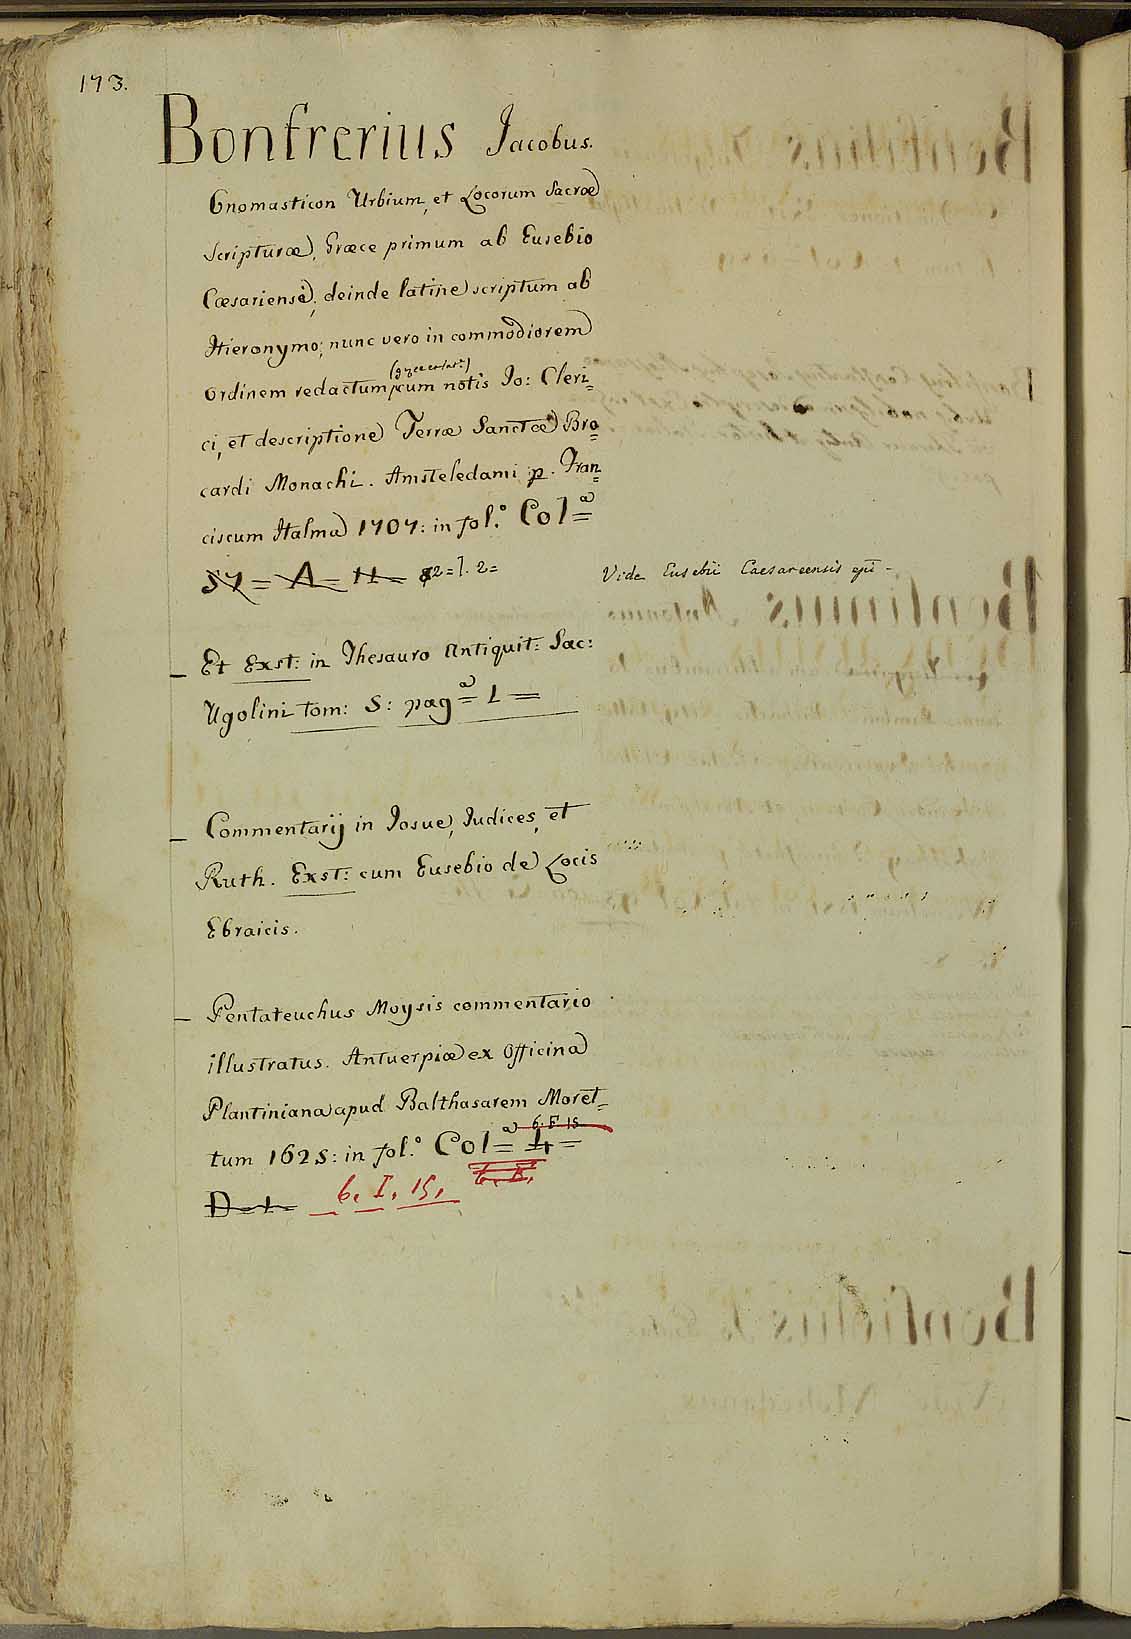 173.
Bonfrerius Jacobus.
Onomasticon Urbium, et Locorum Sacræ
Scripturæ, Græce primum ab Eusebio
Cæsariense, deinde latine scriptum ab
Hieronymo; nunc vero in commodiorem
ordinem redactum, cum notis Io: Cleri=
ci, et descriptione Terræ Sanctæ Bro=
cardi Monachi. Amsteledami p. Fran=
ciscum Halma 1707: in fol.º Col=ª
57= A= 11= 82=I. 2=
Vide Eusebii Caesareensis
Et Exst: in Thesauro Antiquit: Sac:
Ugolini tom: 5: pag=ª 1=
Commentarij in Josue, Iudices, et
Ruth. Exst: cum Eusebio de Locis
Ebraicis.
Pentateuchus Moysis commentario
illustratus. Antuerpiæ ex Officina
Plantiniana apud Balthasarem Moret=
6. F 15
tum 1625: in fol.º Col=ª 4=
D=1= 6. I. 15.